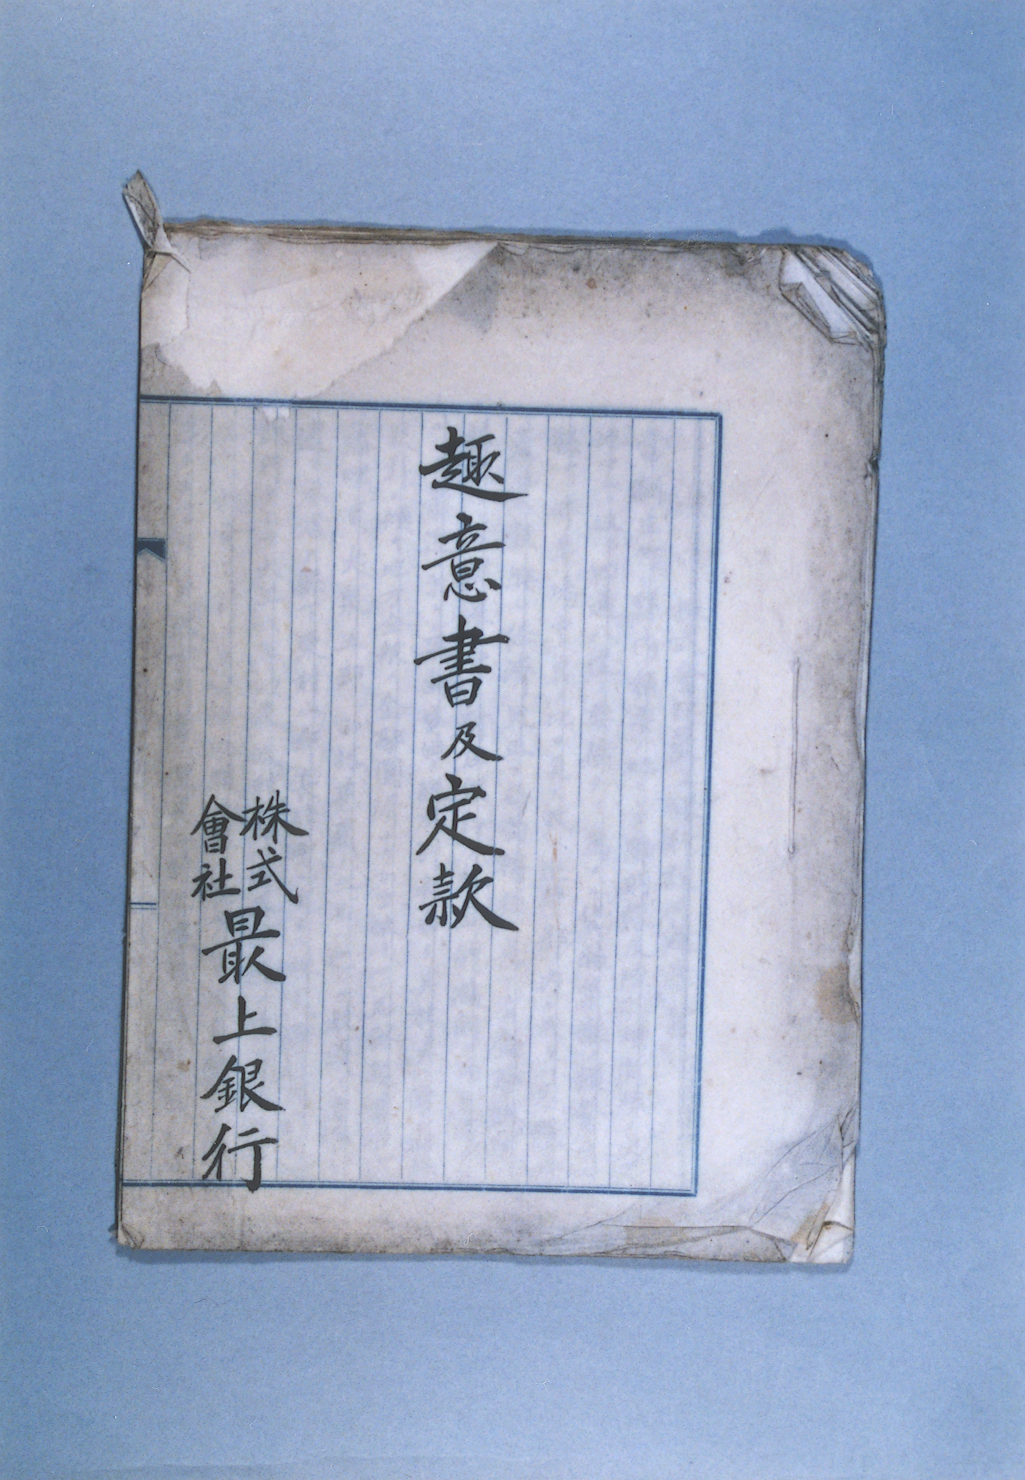 趣意書及定款
株式會社最上銀行